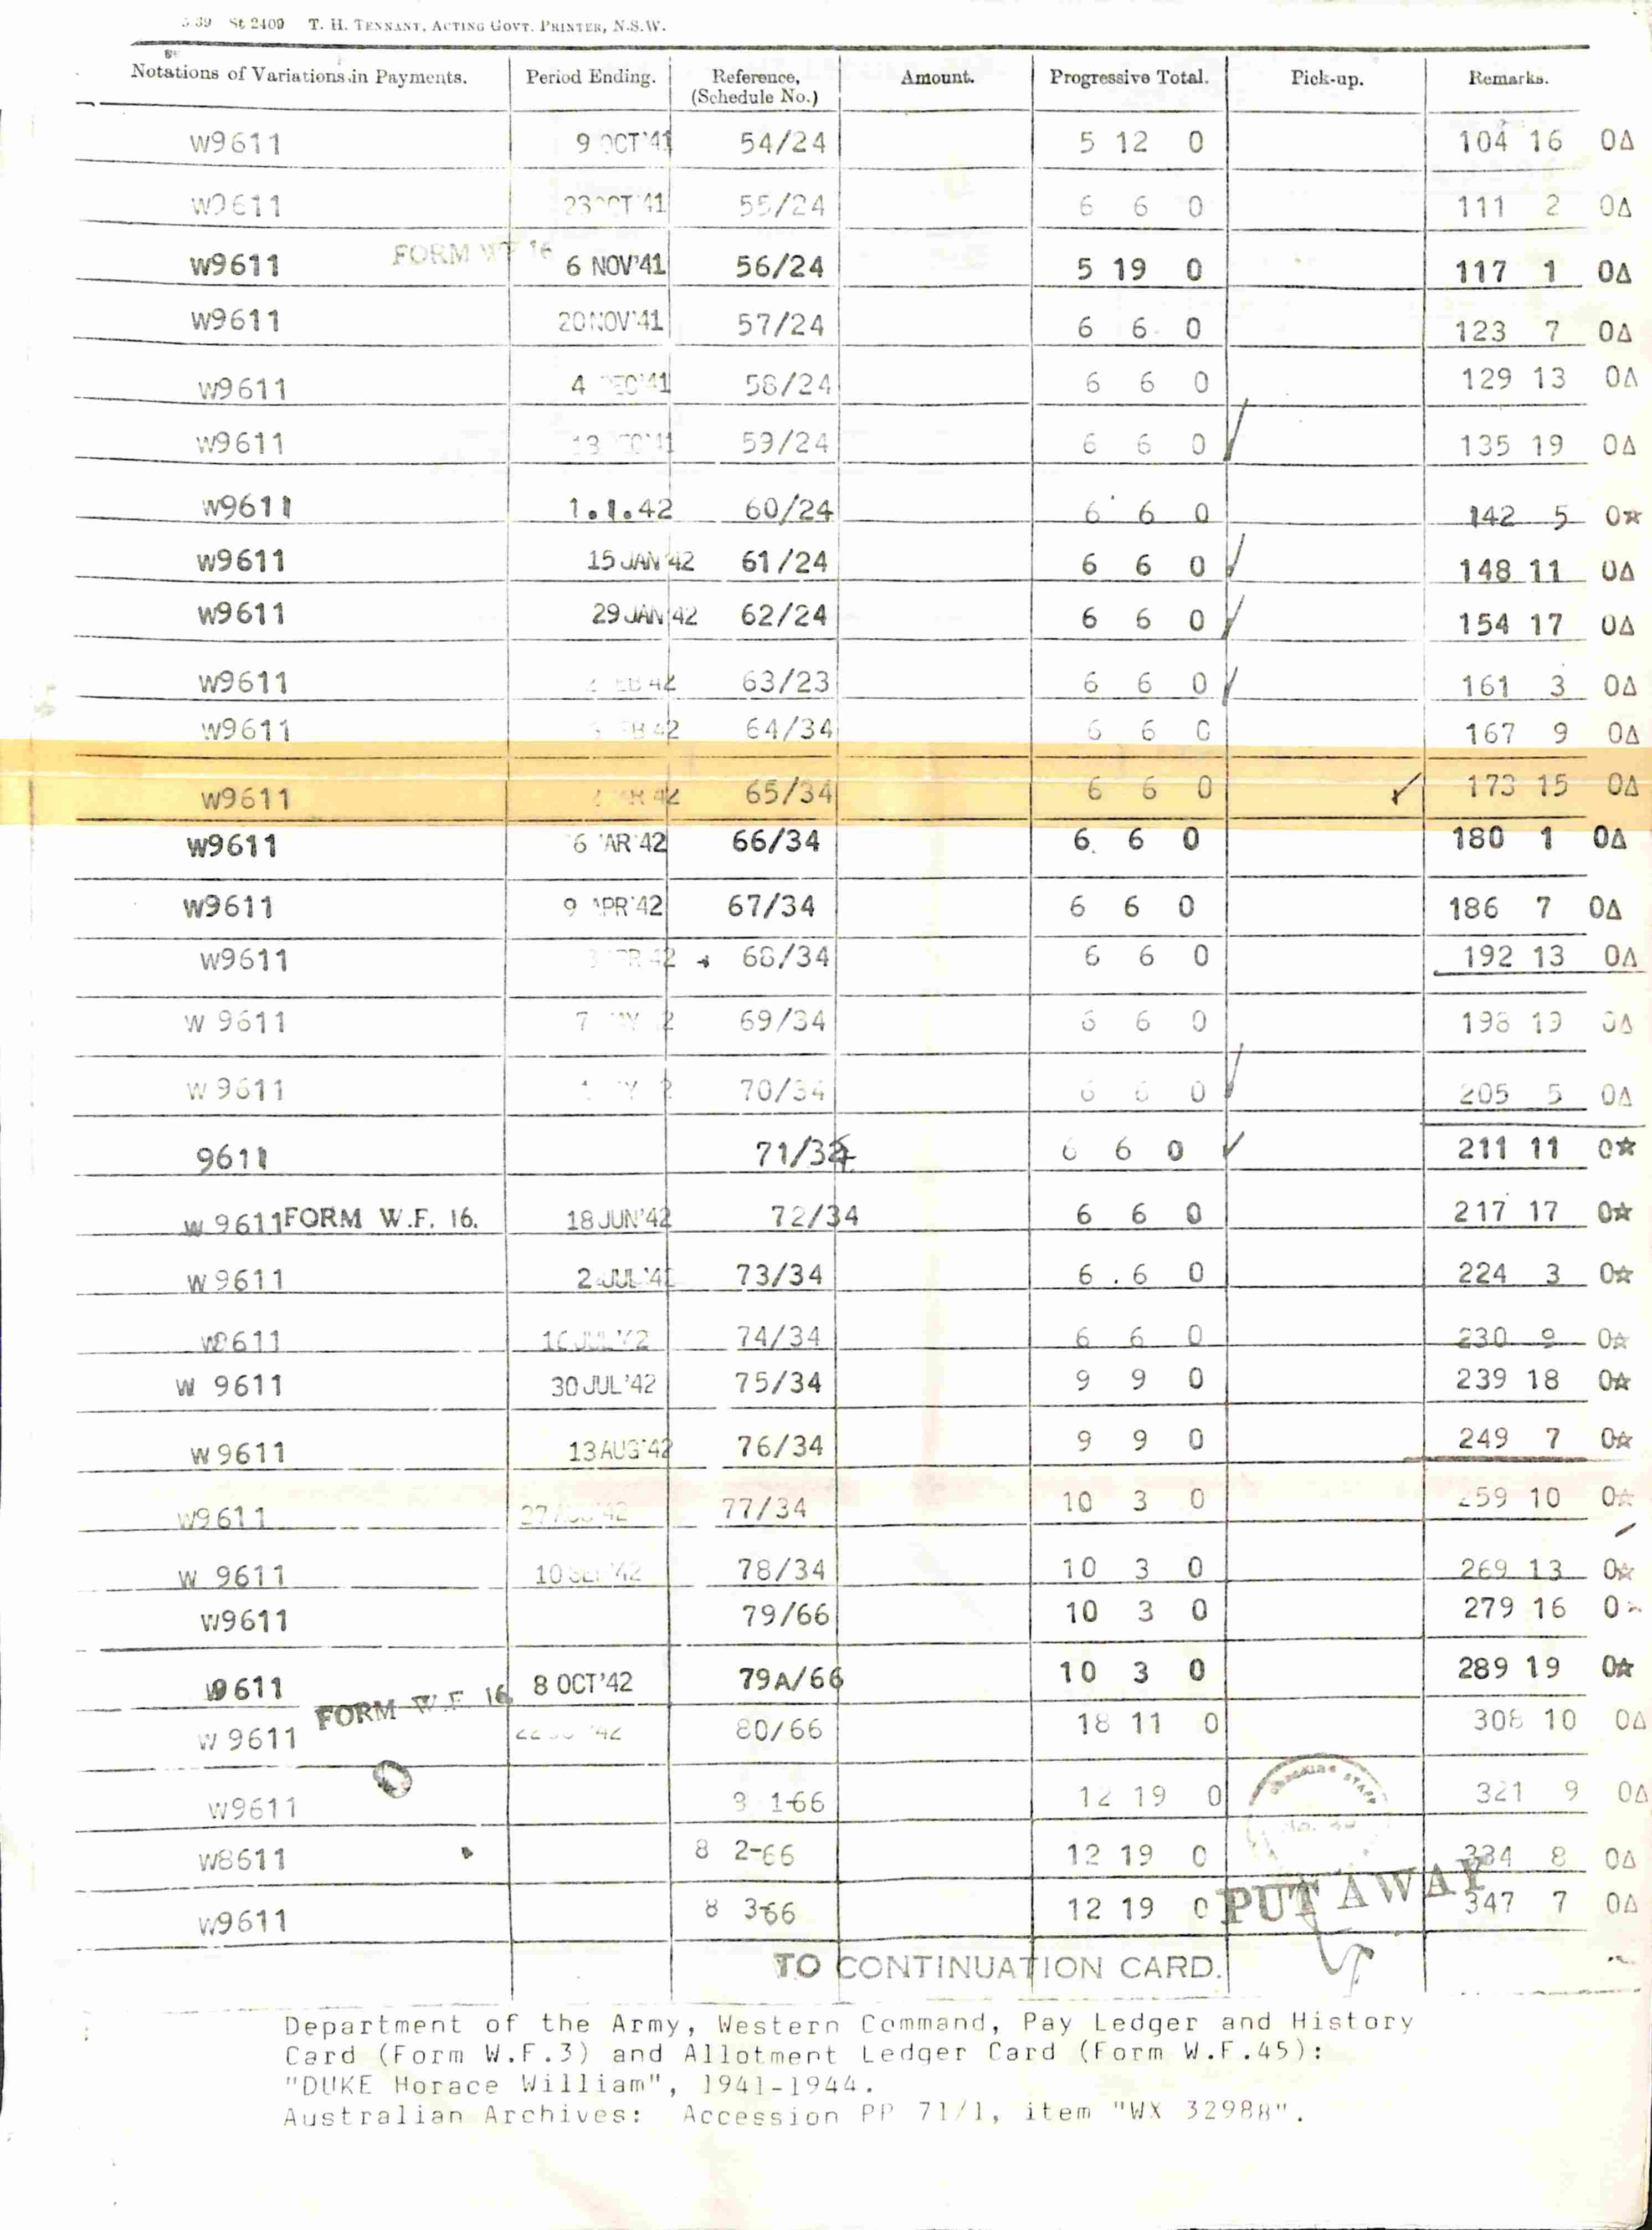 St. 2409 T. H. TENNANT, ACTING GOVT. PRINTER, N.S.W.
Notations of Variations in Payments. Period Ending. Reference, (Schedule No.) Amount. Progressive Total. Pick-up. Remarks.
W9611 9 OCT'41 54/24 5 12 0 104 16 0Δ
W9611 23 OCT'41 55/24 6 6 0 111 2 0Δ
FORM WF 16
W9611 6 NOV'41 56/24 5 19 0 117 1 0Δ
W9611 20 NOV'41 57/24 6 6 0 123 7 0Δ
W9611 4 DEC'41 58/24 6 6 0 129 13 0Δ
W9611 59/24 6 6 0 ✓ 135 19 0Δ
W9611 1.1.42 60/24 6 6 0 142 5 0☆
W9611 15 JAN'42 61/24 6 6 0 ✓ 148 11 0Δ
W9611 29 JAN'42 62/24 6 6 0 ✓ 154 17 0Δ
W9611 63/23 6 6 0 ✓ 161 3 0Δ
W9611 64/34 6 6 0 167 9 0Δ
W9611 65/34 6 6 0 ✓ 173 15 0Δ
W9611 66/34 6 6 0 180 1 0Δ
W9611 9 APR'42 67/34 6 6 0 186 7 0Δ
W9611 68/34 6 6 0 192 13 0Δ
W 9611 69/34 6 6 0 198 19 0Δ
W 9611 70/34 6 6 0 ✓ 205 5 0Δ
9611 71/34 6 6 0 ✓ 211 11 0☆
W 9611 FORM W.F. 16. 18 JUN'42 72/34 6 6 0 217 17 0☆
W 9611 2 JUL'42 73/34 6 6 0 224 3 0☆
W9611 16 JUL'42 74/34 6 6 0 230 9 0☆
W 9611 30 JUL'42 75/34 9 9 0 239 18 0☆
W 9611 13 AUG'42 76/34 9 9 0 249 7 0☆
W9611 27 AUG'42 77/34 10 3 0 259 10 0☆
W 9611 10 SEP'42 78/34 10 3 0 269 13 0☆
W9611 79/66 10 3 0 279 16 0☆
W9611 8 OCT'42 79A/66 10 3 0 289 19 0☆
FORM W.F. 16
W 9611 80/66 18 11 0 308 10 0Δ
W9611 1-66 12 19 0 321 9 0Δ
W8611 8 2-66 12 19 0 334 8 0Δ
W9611 8 3-66 12 19 0 PUT AWAY 347 7 0Δ
TO CONTINUATION CARD.
Department of the Army, Western Command, Pay Ledger and History
Card (Form W.F.3) and Allotment Ledger Card (Form W.F.45):
"DUKE Horace William", 1941-1944.
Australian Archives: Accession PP 71/1, item "WX 32988".